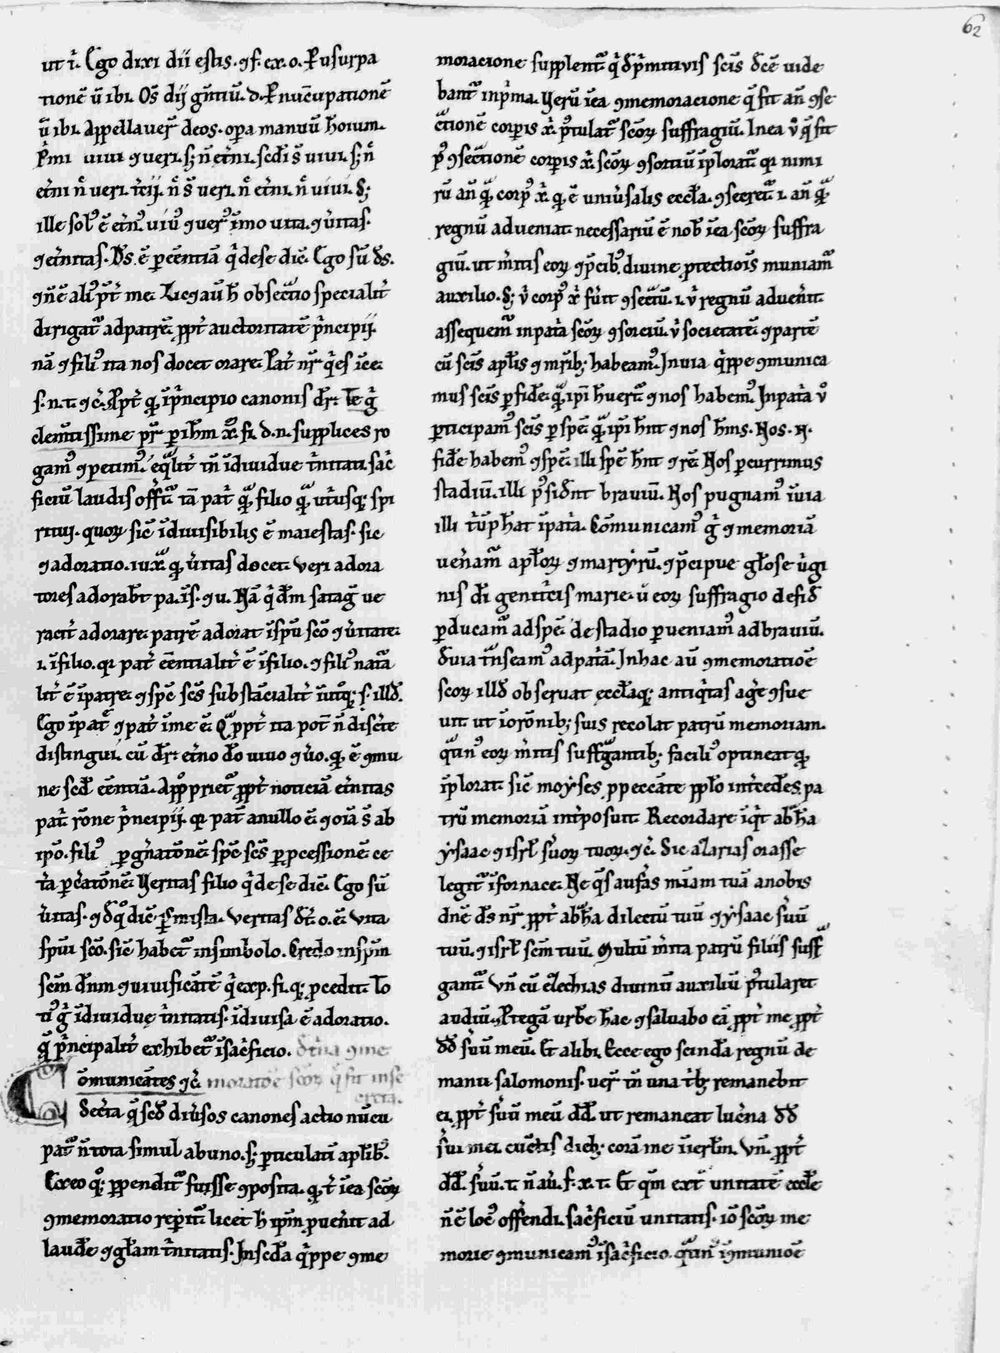 62
ut ı᷒. Ego dixi dii estis. ꝯf. ex. o. ꝑ usurpa
tionē ū ibi. Oſ̄ dij gn̄tiū. d. ꝑ nūcupationē
ū ibi. Appellauer̄ deos. opa manuū hoium.
P̄mi uiui ꝯ ueri. s; n̄ et̄ni. sc̄di s̄ uiui. s; n̄
et̄ni n̄ ueri. t̄cij. n̄ s̄ ueri. n̄ et̄ni. n̄ uiui. S;
ille sol᷒ ē et̄n᷒. uiu᷒ ꝯ uer᷒ īmo uita. ꝯ ūitas.
ꝯ et̄nitas. Dſ̄. ē ꝑ cēntiā q̄ de se dic̄. Ego sū dſ̄.
ꝯ n̄ ē ali᷒ p̄t̄ me. Lic̄ ꝯ aū h̄ obsec̄tio specialit̄
dirigat᷑ ad patrē. ꝓpt̄ auctoritatē p̄ncipij.
nā ꝯ fili᷒ ita nos docet orare. Pat̄ nr̄ q̄ es ī ce.
s. n. t. ꝯc̄. Ꝓpt̄ qd̄ ī p̄ncipio canonis dr̄. Te g̊
clem̄tissime pr̄ ꝑ ihm̄ xm̄. fi. d. n. supplices ro
gam᷒ ꝯ petim᷒. eq̄lit̄ tn̄ īdiuidue t̄nitati sac̄
ficiū laudis offr̄t᷑ tā pat̄ qm̄ filio qm̄ ut̄usq; spi
ritui. quoꝝ sic̄ īdiuisibilis ē maiestas. sic
ꝯ adoratio. iux̄ qd̄ ūitas docet. Veri adora
tores adorab̄t pa. ī s. ꝯ u. Nā q̄dm̄ satag̅ ue
racit̄ adorare. patrē adorat ī spū sc̄o ꝯ ūitate.
.i. ī filio. qi pat̄ ēēntialit̄ ē ī filio. ꝯ fili᷒ nat᷑a
lit̄ ē ī patre. ꝯ spc̄ sc̄s substācialit̄ ī ut̄q;. s. illd̄.
Ego ī pat̄ ꝯ pat̄ ī me ē. Q᷑ ꝓpt̄ ita pot̄ n̄ discr̄te
distingui. cū dr̄. et̄no do uiuo ꝯ ūo. qd̄ ē ꝯmu
ne sc̄d ēēntiā. Appropriet᷑ ꝓpt̄ noticiā et̄nitas
pat̄ rōne p̄ncipij. qi pat̄ a nullo ē. ꝯ oīa s̄ ab
ipo. fili᷒ ꝑ gn̄atōnē. spc̄ sc̄s ꝑ ꝓcessionē. ce
t̄a ꝑ c̄atōnē. Veritas filio q̄ de se dic̄. Ego sū
ūitas. ꝯ d q̊ dic̄. Psalmista. veritas dt̄ o. ē. Vita
spūi sc̄o. sic̄ habet᷑ in simbolo. Credo in spm̄
sc̄m dn̄m ꝯ uiuificātē q̄ ex p. fi. q; ꝓcedit. To
ti᷒ g̊ īdiuidue t̄nitatis. īdiuisa ē adoratio.
q̄ p̄ncipalit̄ exhibet᷑ ī sac̄ficio. De t̄tia ꝯme
Communicātes ꝯc̄ moratōe sc̄oꝝ q̄ fit in se
creta.
Secr̄ta q̄ sc̄d diūsos canones actio nūcu
pat᷑ n̄ tota simul ab uno. s; ꝑticulatī a plib᷒.
Ex eo q; ꝓpendit᷑ fuisse ꝯposita. qd̄ t̄ in ea sc̄oꝝ
ꝯmemoratio reꝑit᷑. licet h̄ ipm̄ ꝑuenit ad
laudē ꝯ gl̄am t̄nitatis. In sc̄da q̄ppe ꝯme
moracione supplent᷑ q̄ d p̄mitiuis sc̄is dc̄ē uide
bant᷑ in p̄ma. Verū ī ea ꝯmemoracione q̄ fit an̄ ꝯse
c̄tionē corpis x̄. p̄tulat᷑ sc̄oꝝ suffragiū. In ea ū q̄ fit
p᷒ ꝯsec̄tionē corpis x̄. sc̄oꝝ ꝯsortiū ī plorat᷑. qi nimi
rū an̄ qm̄ corp᷒ x̄. qd̄ ē uniūsalis ecc̄la. ꝯsecret᷑ .i. an̄ qm̄
regnū adueniat. necessariū ē nob̄ ī ea sc̄oꝝ suffra
giū. ut m̄itis eoꝝ ꝯ p̄cib᷒ diuine ꝓtectiōis muniam᷑
auxilio. S; ū corp᷒ x̄ fūit ꝯsec̄tū. .i. ū regnū aduen̄it.
assequem᷑ in pat̄a sc̄oꝝ ꝯsorciū. ū societatē ꝯ partē
cū sc̄is apl̄is ꝯ mr̄ib; habeam᷒. In uia q̄ppe ꝯmunica
mus sc̄is ꝑ fidē. qm̄ ip̄i h̄uer̄t ꝯ nos habem᷒. In pat̄a ū
ꝑticipam᷒ sc̄is ꝑ spē. qm̄ ip̄i hn̄t ꝯ nos hm̄s. Nos. n.
fidē habem᷒ ꝯ spē. illi spē hn̄t ꝯ rē. Nos ꝑcurrimus
stadiū. illi p̄sidn̄t brauiū. Nos pugnam᷒ ī uia
illi t̄ūphāt ī pat̄a. Cōmunicam᷒ g̊ ꝯ memoriā
uen̄am᷑ apl̄oꝝ ꝯ martyrū. ꝯ p̄cipue gl̄ose ūgi
nis di genit̄cis marie. ū eoꝝ suffragio de fid̄
ꝑducam᷑ ad spē. de stadio ꝑueniam᷒ ad brauiū.
d̄ uia t̄nseam᷒ ad pat̄iā. In hac aū ꝯmemoratōe
sc̄oꝝ illd̄ obseruat ecc̄la qd̄ antiq̄tas ag̅e ꝯsue
uit. ut ī orōnib; suis recolat patrū memoriam.
q̄tin᷒ eoꝝ m̄itis suff᷑gantib; facili᷒ optineat qd̄
ī plorat. Sic̄ moyses ꝓ peccāte ꝓplo int̄cedēs. pa
trū memoriā int̄posuit. Recordare īqt̄ abh̄a
ysaac ꝯ isrl̄ s̄uoꝝ tuoꝝ. ꝯc̄. Sic azarias orasse
legit᷑ ī fornace. Ne q̄s aufas mīam tuā a nobis
dn̄e dſ̄ nr̄ ꝓpt̄ abh̄a dilectū tuū ꝯ ysaac s̄uū
tuū. ꝯ isrl̄ sc̄m tuū. Multū m̄ita patrū filiis suff᷑
gant᷑. Vn̄ cū ezechias diuinū auxiliū p̄tularet
audiu. Ꝓtegā urbē hāc ꝯ saluabo eā ꝓpt̄ me ꝓpt̄
dd̄ s̄uū meū. Et alibi. Ecce ego scindā regnū de
manu salomonis. uer̄ tn̄ una t̄b; remanebit
ei. ꝓpt̄ s̄uū meū dd̄. ut remaneat luc̄na dd̄
s̄ui mei. cūctis dieb; corā me ī ierl̄m. Vn̄. ꝓpt̄
dd̄. s̄uū. t. n̄ au. f. x. t. Et qm̄ ext̄ unitatē eccl̄e
n̄ ē loc᷒ offerendi sac̄ficiū unitatis. iō sc̄oꝝ me
morie ꝯmunicam᷒ ī sac̄ficio. q̄tin᷒ ī ꝯmuniōe